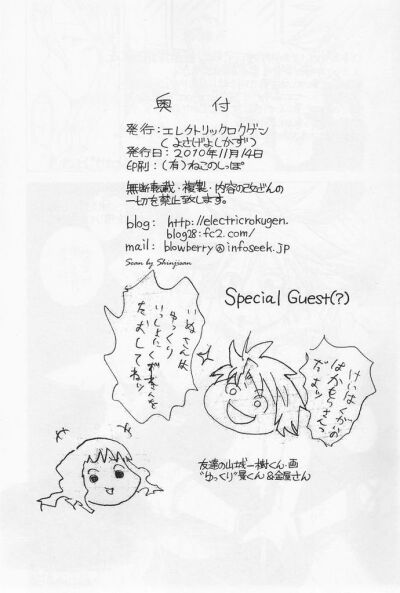 奥付
発行：エレクトリックロクゲン
（よさげよしかず）
発行日：2010年11月14日
印刷：（有）ねこのしっぽ
無断転載・複製・内容の改ざんの
一切を禁止致します。
blog: http://electricrokugen.
blog28.fc2.com/
mail: blowberry@infoseek.jp
Scan by Shinjisan
Special Guest(?)
いぬさんは
ゆっくり
たおしてねッ
けいはくかいの
だよッ
友達の山城一樹くん・画
"ゆっくり"曇くん&金屋さん